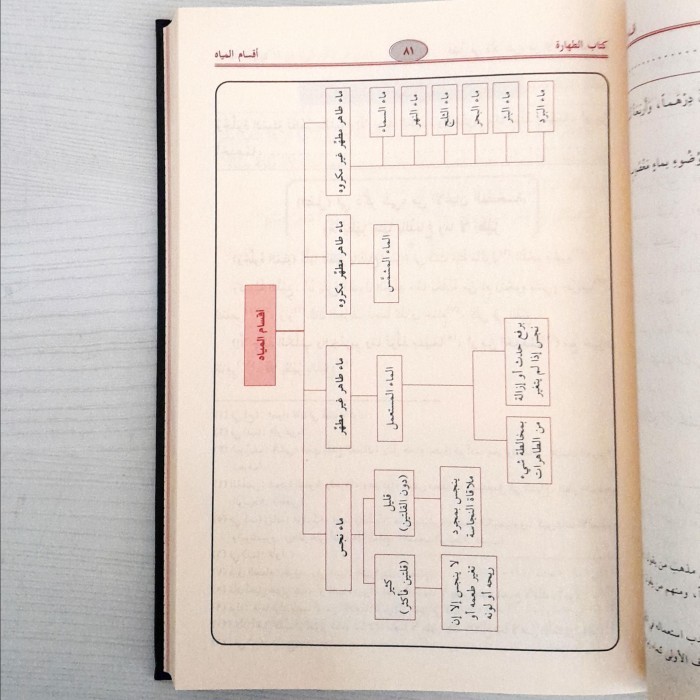 كتاب الطهارة
٨١
أقسام المياه
أقسام المياه
ماء طاهر مطهّر غير مكروه
ماء السماء
ماء النهر
ماء الثلج
ماء البحر
ماء البئر
ماء البَرَد
ماء طاهر مطهّر مكروه
الماء المشمّس
ماء طاهر غير مطهّر
الماء المستعمل
برفع حدث أو إزالة
نجس إذا لم يتغير
بمخالطة شيء
من الطاهرات
ماء نجس
قليل
(دون القلتين)
ينجس بمجرد
ملاقاة النجاسة
كثير
(قلتين فأكثر)
لا ينجس إلا إن
تغير طعمه أو
ريحه أو لونه